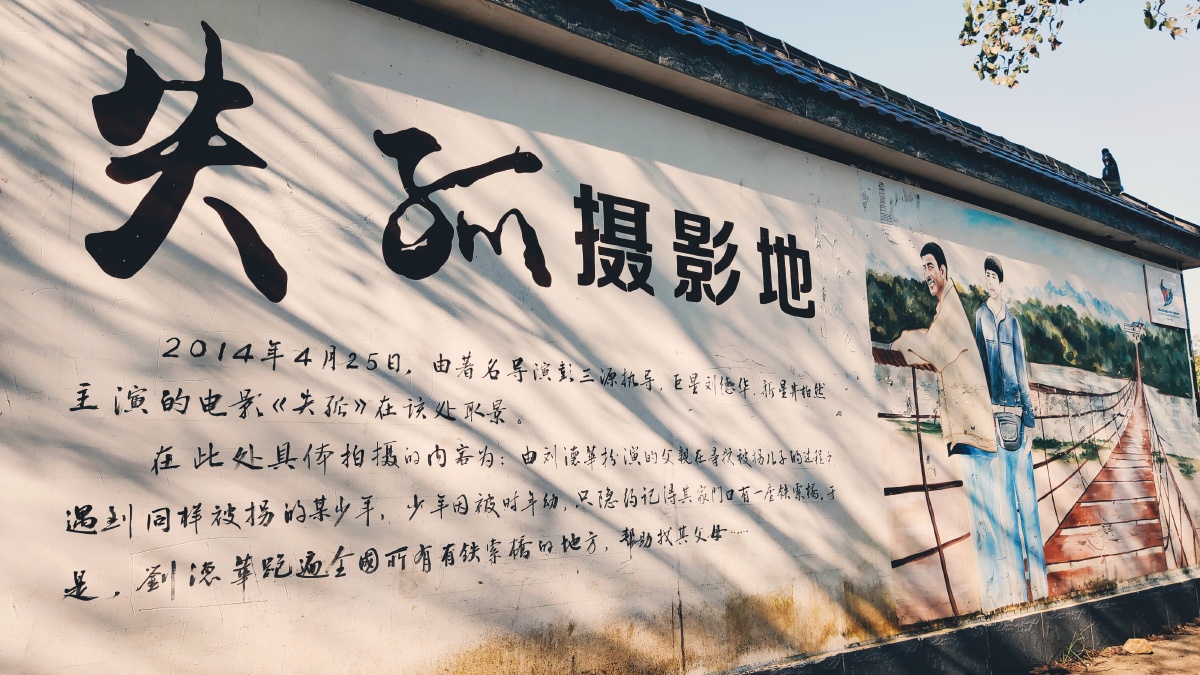 失孤 摄影地
2014年4月25日，由著名导演彭三源执导，巨星刘德华，新星井柏然
主演的电影《失孤》在该处取景。
在此处具体拍摄的内容为：由刘德华扮演的父親在寻找被拐儿子的过程中
遇到同样被拐的某少年，少年因被时年幼，只隐约记得其家门口有一座铁索橋，于
是，劉德華跑遍全國所有有铁索橋的地方，帮助找其父母……